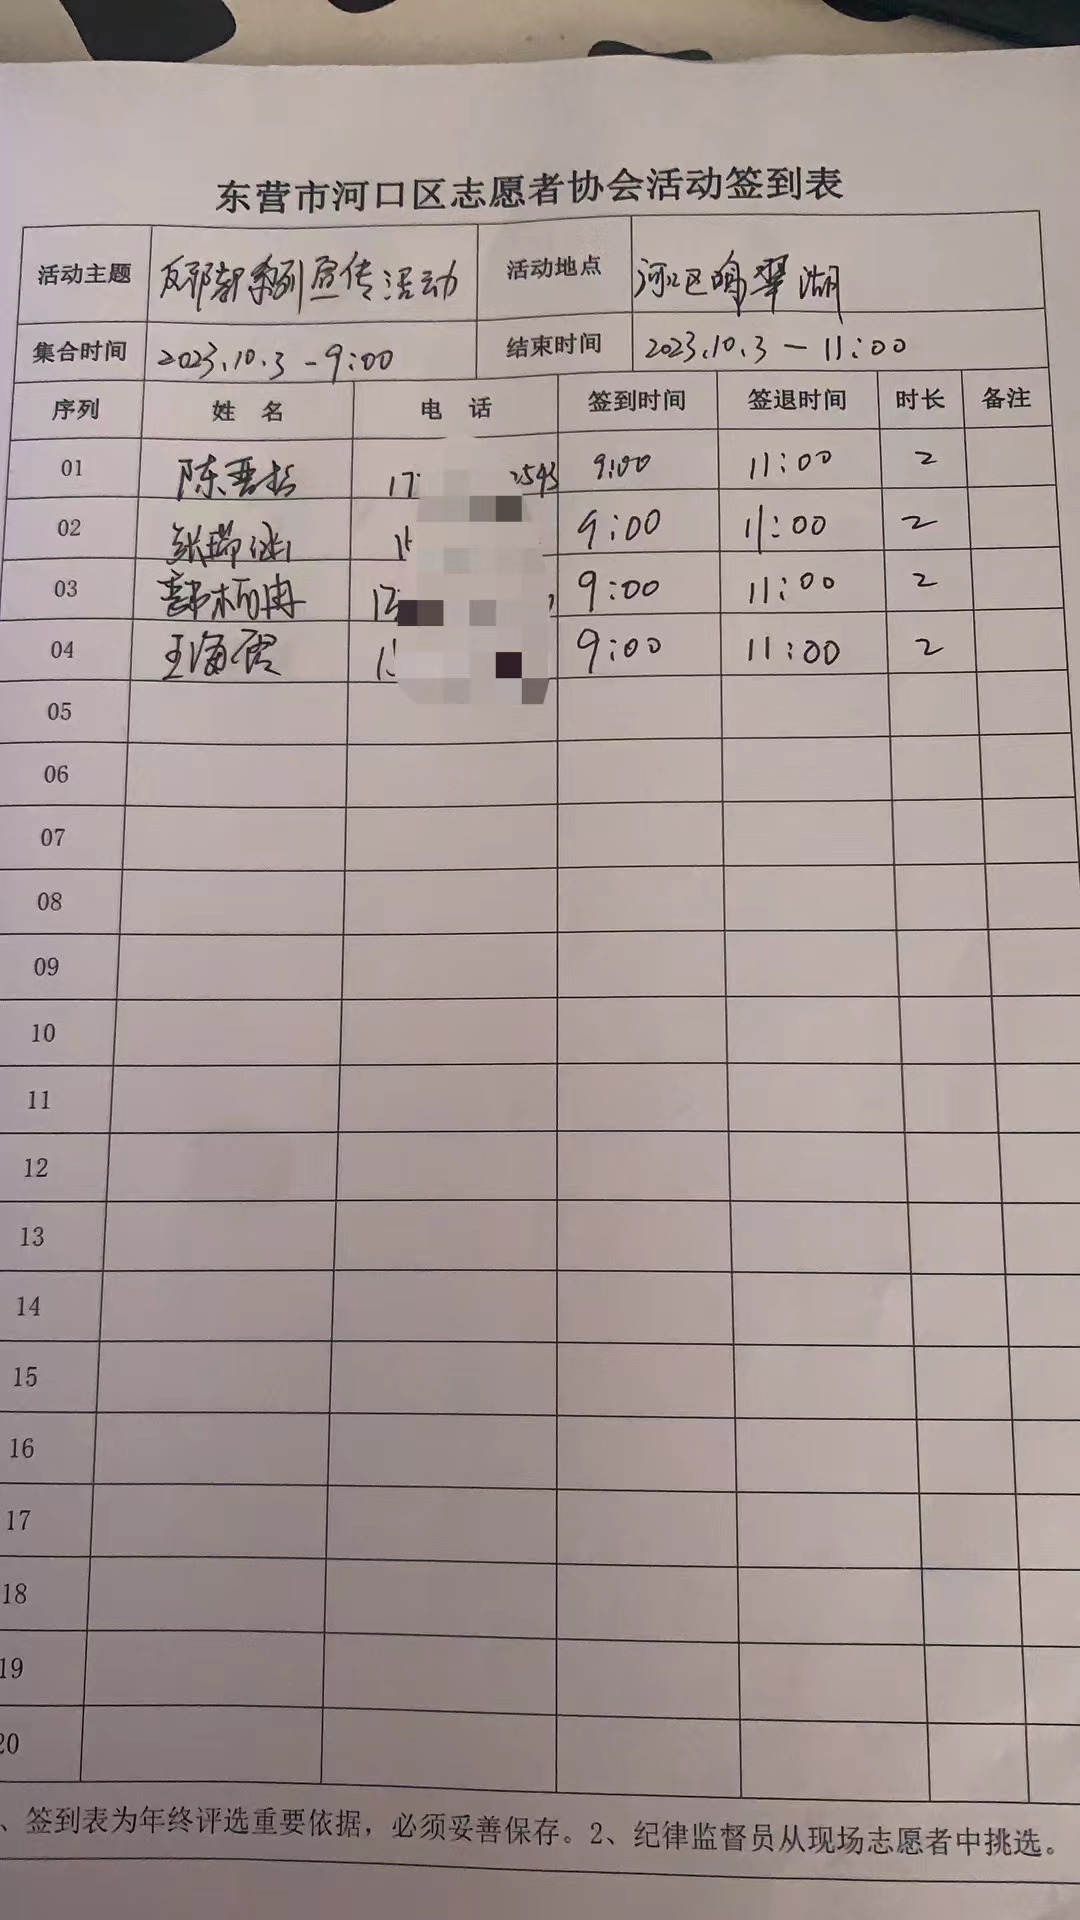 东营市河口区志愿者协会活动签到表
活动主题 反邪教系列宣传活动 活动地点 河口区鸣翠湖
集合时间 2023.10.3-9:00 结束时间 2023.10.3-11:00
序列 姓 名 电 话 签到时间 签退时间 时长 备注
01 陈 17 2543 9:00 11:00 2
02 张瑞 1 9:00 11:00 2
03 韩柏冉 1 9:00 11:00 2
04 王海君 1 9:00 11:00 2
05
06
07
08
09
10
11
12
13
14
15
16
17
18
19
20
、签到表为年终评选重要依据，必须妥善保存。2、纪律监督员从现场志愿者中挑选。